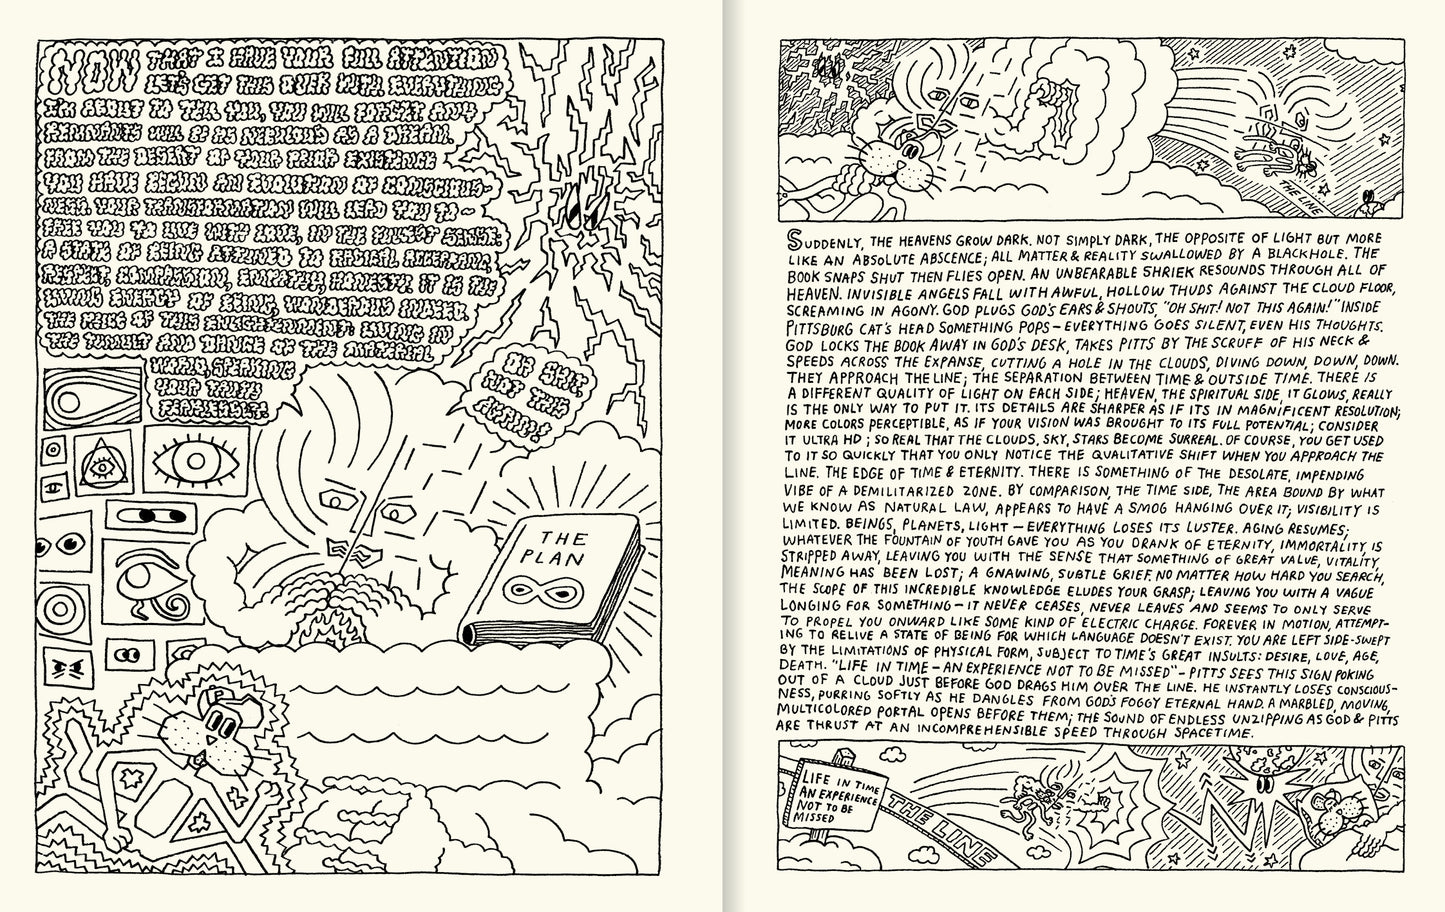 NOW THAT I HAVE YOUR FULL ATTENTION
LET'S GET THIS OVER WITH. EVERYTHING
I'M ABOUT TO TELL YOU, YOU WILL FORGET. ANY
REMNANTS WILL BE AS NEBULOUS AS A DREAM.
FROM THE DESERT OF YOUR PRIOR EXISTENCE
YOU HAVE BEGUN AN EVOLUTION OF CONSCIOUS-
NESS. YOUR TRANSFORMATION WILL LEAD YOU TO -
FREE YOU TO LIVE WITH LOVE, IN THE FULLEST SENSE:
A STATE OF BEING ATTUNED TO RADICAL
RESPECT, COMPASSION, EMPATHY, HONESTY. IT IS THE
LIVING ENERGY OF BEING, WONDEROUS INDEED.
THE PRICE OF THIS ENLIGHTENMENT: LIVING IN
THE TUMULT AND DANCE OF THE MATERIAL
WORLD, SPEAKING
YOUR TRUTH
FEARLESSLY.
OH SHIT,
NOT THIS
AGAIN!
THE
PLAN
THE LINE
SUDDENLY, THE HEAVENS GROW DARK. NOT SIMPLY DARK, THE OPPOSITE OF LIGHT BUT MORE
LIKE AN ABSOLUTE ABSCENCE; ALL MATTER & REALITY SWALLOWED BY A BLACKHOLE. THE
BOOK SNAPS SHUT THEN FLIES OPEN. AN UNBEARABLE SHRIEK RESOUNDS THROUGH ALL OF
HEAVEN. INVISIBLE ANGELS FALL WITH AWFUL, HOLLOW THUDS AGAINST THE CLOUD FLOOR,
SCREAMING IN AGONY. GOD PLUGS GOD'S EARS & SHOUTS, "OH SHIT! NOT THIS AGAIN!" INSIDE
PITTSBURG CAT'S HEAD SOMETHING POPS - EVERYTHING GOES SILENT, EVEN HIS THOUGHTS.
GOD LOCKS THE BOOK AWAY IN GOD'S DESK, TAKES PITTS BY THE SCRUFF OF HIS NECK &
SPEEDS ACROSS THE EXPANSE, CUTTING A HOLE IN THE CLOUDS, DIVING DOWN, DOWN, DOWN.
THEY APPROACH THE LINE; THE SEPARATION BETWEEN TIME & OUTSIDE TIME. THERE IS
A DIFFERENT QUALITY OF LIGHT ON EACH SIDE; HEAVEN, THE SPIRITUAL SIDE, IT GLOWS, REALLY
IS THE ONLY WAY TO PUT IT. ITS DETAILS ARE SHARPER AS IF ITS IN MAGNIFICENT RESOLUTION;
MORE COLORS PERCEPTIBLE, AS IF YOUR VISION WAS BROUGHT TO ITS FULL POTENTIAL; CONSIDER
IT ULTRA HD; SO REAL THAT THE CLOUDS, SKY, STARS BECOME SURREAL. OF COURSE, YOU GET USED
TO IT SO QUICKLY THAT YOU ONLY NOTICE THE QUALITATIVE SHIFT WHEN YOU APPROACH THE
LINE. THE EDGE OF TIME & ETERNITY. THERE IS SOMETHING OF THE DESOLATE, IMPENDING
VIBE OF A DEMILITARIZED ZONE. BY COMPARISON, THE TIME SIDE, THE AREA BOUND BY WHAT
WE KNOW AS NATURAL LAW, APPEARS TO HAVE A SMOG HANGING OVER IT; VISIBILITY IS
LIMITED. BEINGS, PLANETS, LIGHT - EVERYTHING LOSES ITS LUSTER. AGING RESUMES;
WHATEVER THE FOUNTAIN OF YOUTH GAVE YOU AS YOU DRANK OF ETERNITY, IMMORTALITY, IS
STRIPPED AWAY, LEAVING YOU WITH THE SENSE THAT SOMETHING OF GREAT VALUE, VITALITY,
MEANING HAS BEEN LOST; A GNAWING, SUBTLE GRIEF. NO MATTER HOW HARD YOU SEARCH,
THE SCOPE OF THIS INCREDIBLE KNOWLEDGE ELUDES YOUR GRASP; LEAVING YOU WITH A VAGUE
LONGING FOR SOMETHING - IT NEVER CEASES, NEVER LEAVES AND SEEMS TO ONLY SERVE
TO PROPEL YOU ONWARD LIKE SOME KIND OF ELECTRIC CHARGE. FOREVER IN MOTION, ATTEMPT-
ING TO RELIVE A STATE OF BEING FOR WHICH LANGUAGE DOESN'T EXIST. YOU ARE LEFT SIDE-SWEPT
BY THE LIMITATIONS OF PHYSICAL FORM, SUBJECT TO TIME'S GREAT INSULTS: DESIRE, LOVE, AGE,
DEATH. "LIFE IN TIME - AN EXPERIENCE NOT TO BE MISSED" - PITTS SEES THIS SIGN POKING
OUT OF A CLOUD JUST BEFORE GOD DRAGS HIM OVER THE LINE. HE INSTANTLY LOSES CONSCIOUS-
NESS, PURRING SOFTLY AS HE DANGLES FROM GOD'S FOGGY ETERNAL HAND. A MARBLED, MOVING,
MULTICOLORED PORTAL OPENS BEFORE THEM; THE SOUND OF ENDLESS UNZIPPING AS GOD & PITTS
ARE THRUST AT AN INCOMPREHENSIBLE SPEED THROUGH SPACETIME.
LIFE IN TIME
AN EXPERIENCE
NOT TO BE
MISSED
THE LINE